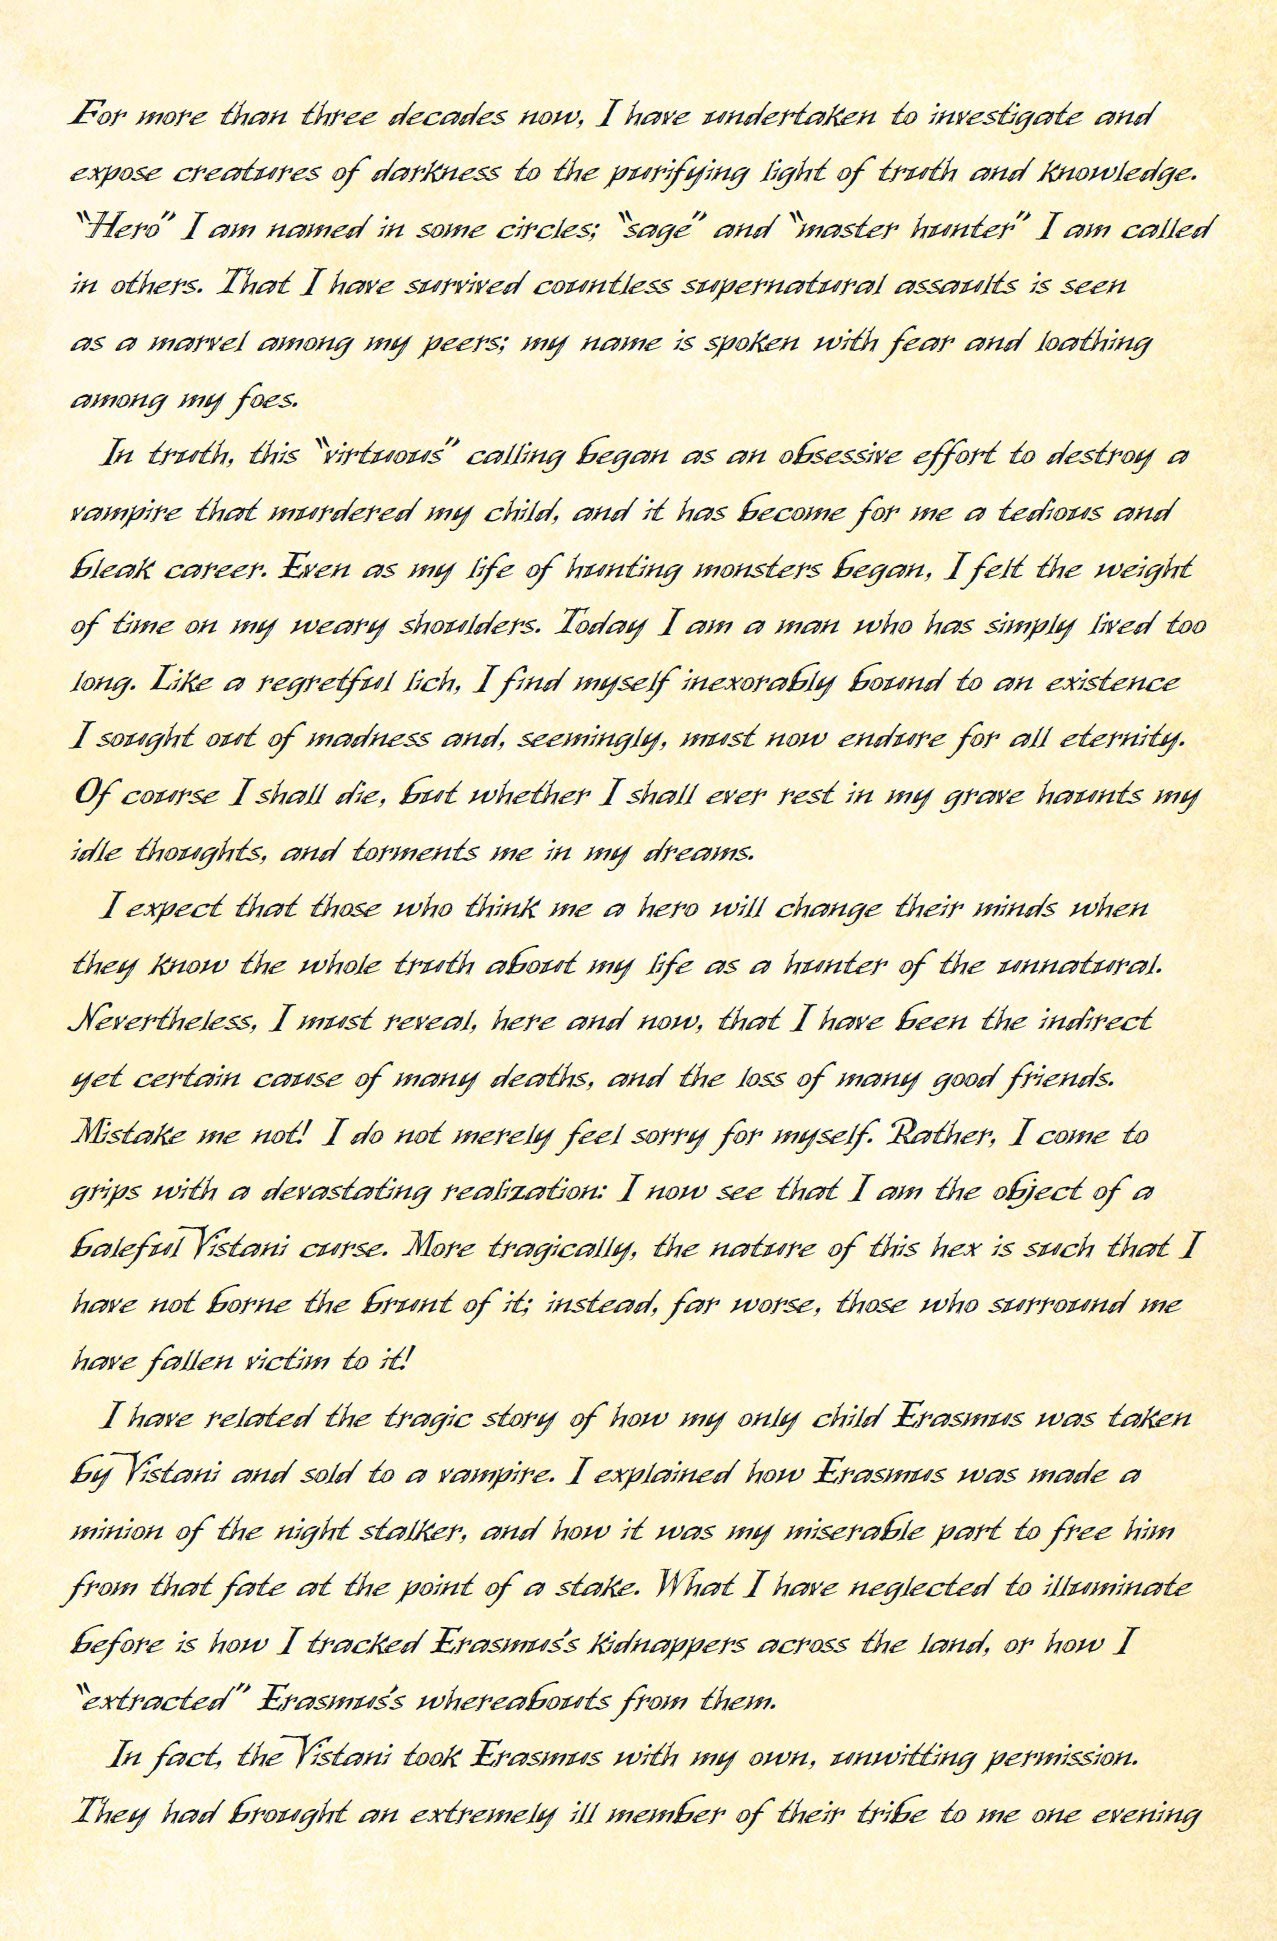 For more than three decades now, I have undertaken to investigate and
expose creatures of darkness to the purifying light of truth and knowledge.
“Hero” I am named in some circles; “sage” and “master hunter” I am called
in others. That I have survived countless supernatural assaults is seen
as a marvel among my peers; my name is spoken with fear and loathing
among my foes.
In truth, this “virtuous” calling began as an obsessive effort to destroy a
vampire that murdered my child, and it has become for me a tedious and
bleak career. Even as my life of hunting monsters began, I felt the weight
of time on my weary shoulders. Today I am a man who has simply lived too
long. Like a regretful lich, I find myself inexorably bound to an existence
I sought out of madness and, seemingly, must now endure for all eternity.
Of course I shall die, but whether I shall ever rest in my grave haunts my
idle thoughts, and torments me in my dreams.
I expect that those who think me a hero will change their minds when
they know the whole truth about my life as a hunter of the unnatural.
Nevertheless, I must reveal, here and now, that I have been the indirect
yet certain cause of many deaths, and the loss of many good friends.
Mistake me not! I do not merely feel sorry for myself. Rather, I come to
grips with a devastating realization: I now see that I am the object of a
baleful Vistani curse. More tragically, the nature of this hex is such that I
have not borne the brunt of it; instead, far worse, those who surround me
have fallen victim to it!
I have related the tragic story of how my only child Erasmus was taken
by Vistani and sold to a vampire. I explained how Erasmus was made a
minion of the night stalker, and how it was my miserable part to free him
from that fate at the point of a stake. What I have neglected to illuminate
before is how I tracked Erasmus’s kidnappers across the land, or how I
“extracted” Erasmus’s whereabouts from them.
In fact, the Vistani took Erasmus with my own, unwitting permission.
They had brought an extremely ill member of their tribe to me one evening